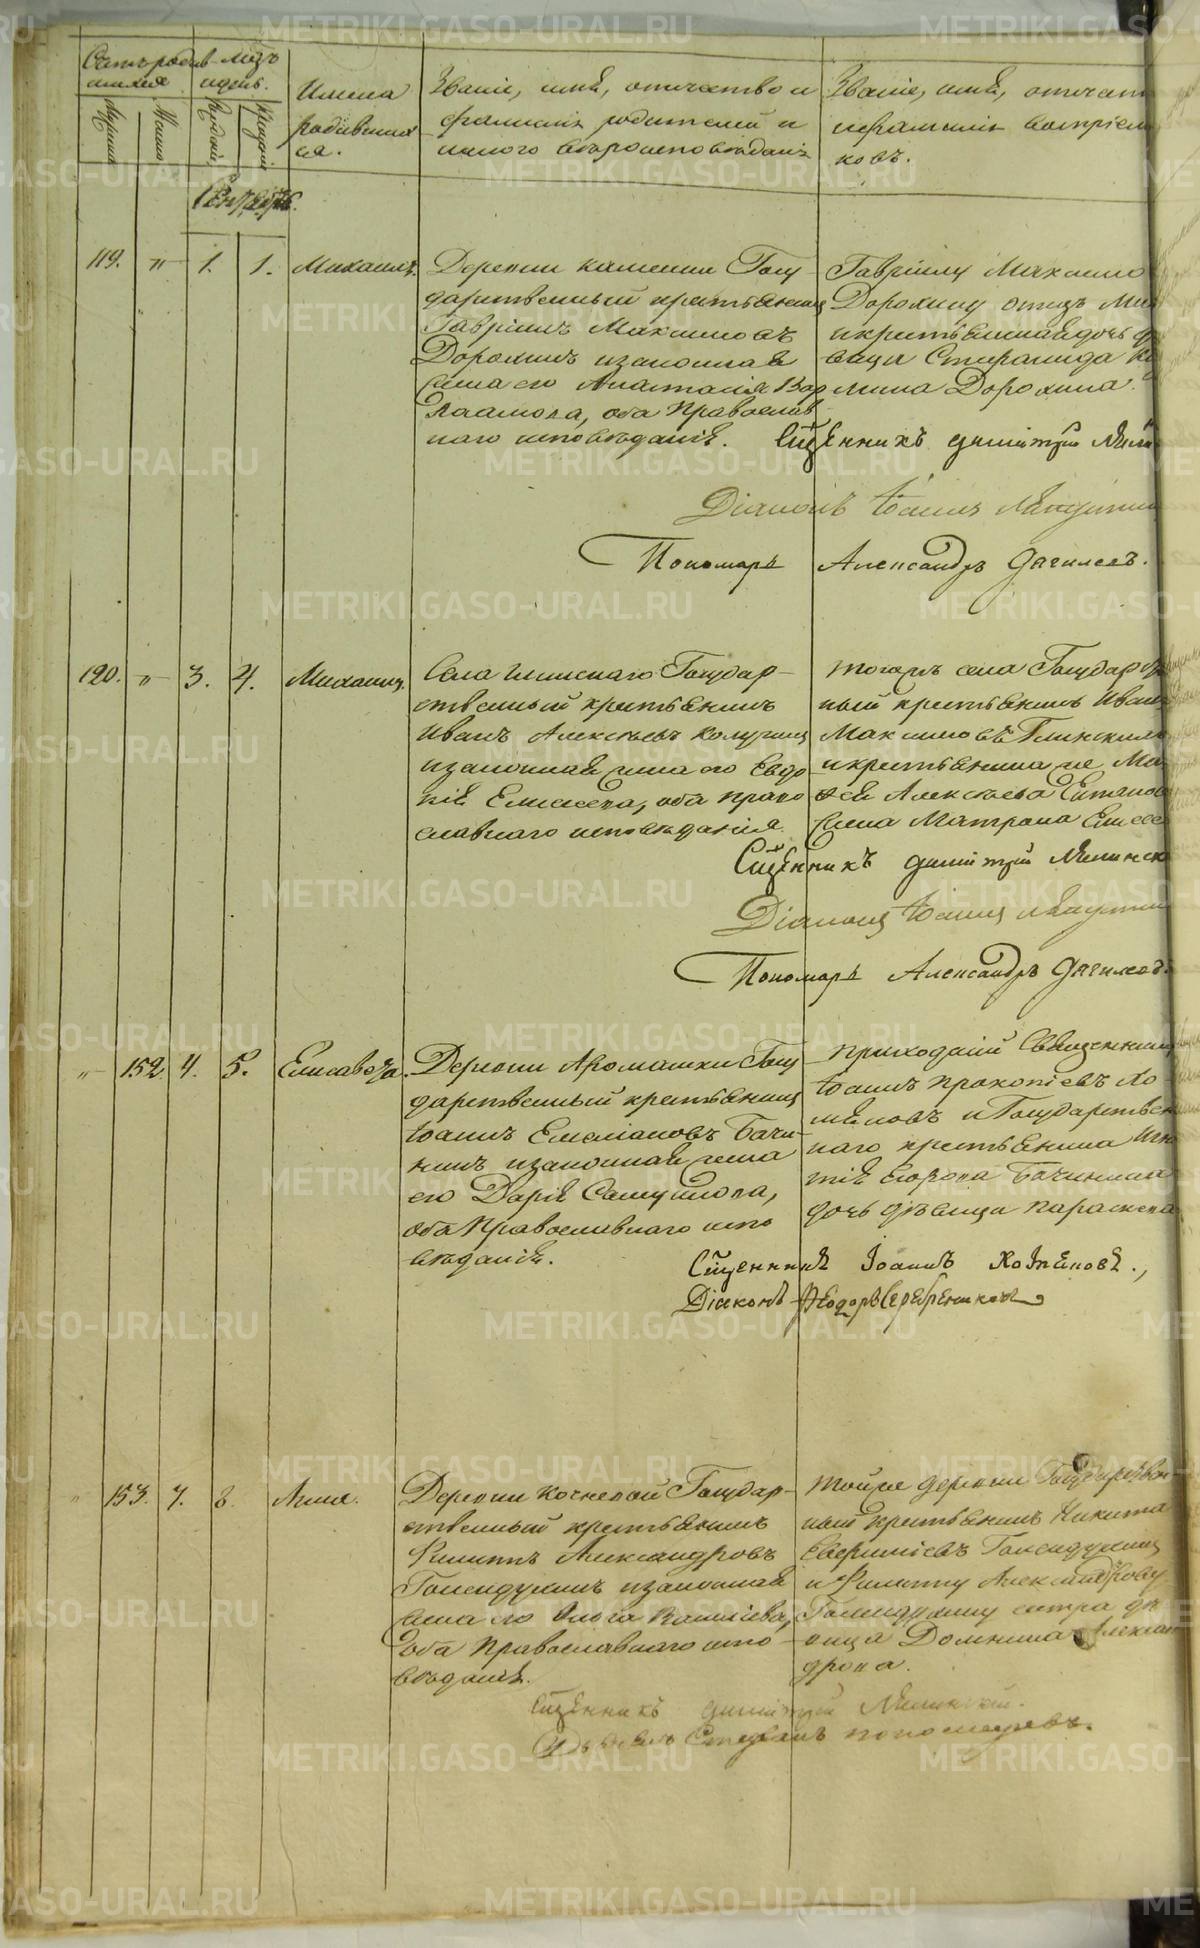 Счетъ родив-
шихся
Мѣзъ
и день.
Имена
родивших
ся.
Званіе, имя, отчество и
фамилія родителей и
какого вѣроисповѣданія
Званіе, имя, отчест
и фамилія воспріем
ковъ.
Мужеска
Женска
Рожденія
Крещенія
Сентябрь.
119. " 1. 1. Михаилъ.
Деревни Каменки Госу
дарственный крестьянинъ
Гавріилъ Максимовъ
Дорохинъ и законная
жена его Анастасія Вар
лаамова, оба Православ
наго исповѣданія.
Гавріилу Максимо
Дорохину отецъ
и крестьянская дочь
вица Стефанида
мина Дорохина.
Сщенникъ Димитрій
Діаконъ Іоаннъ
Пономарь Александръ Дягилевъ.
120. " 3. 4. Михаилъ.
Села Государ-
ственный крестьянинъ
Иванъ Алексѣевъ
и законная жена его Евдо
кія Елисеева, оба право
славнаго исповѣданія.
тогожъ села Государств
ный крестьянинъ Иванъ
Максимовъ Глинскихъ
и крестьянина же
Алексѣева
жена Матрона Елисе
Сщенникъ Димитрій
Діаконъ Іоаннъ
Пономарь Александръ Дягилевъ.
" 152. 4. 5. Елисавета.
Деревни Аромашки Госу
дарственный крестьянинъ
Іоаннъ Емеліановъ Бачи-
нинъ и законная жена
его Дарія Самуилова,
оба Православнаго испо
вѣданія.
Приходскій Священникъ
Іоаннъ Прокопіевъ Хо-
мяковъ и Государствен
наго крестьянина Игна
тія Егорова Бачинина
дочь дѣвица Параскева
Сщенникъ Іоаннъ Хомяковъ.,
Діаконъ Ѳеодоръ Серебрениковъ
" 153. 7. 8. Анна.
Деревни Кочневой Государ-
ственный крестьянинъ
Филиппъ Александровъ
Голендухинъ и законная
жена его Ольга Василіева,
оба Православнаго испо-
вѣданія.
тойже деревни Государствен
ный крестьянинъ Никита
Евфиміевъ Голендухинъ
и Филиппу Александрову
Голендухину сестра дѣ
вица Домника Алексан
дрова.
Сщенникъ Димитрій
Дьячекъ Стефанъ Пономаревъ.
METRIKI.GASO-URAL.RU